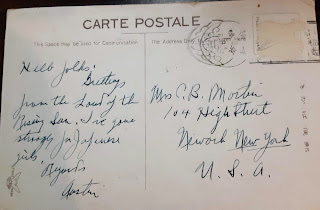 CARTE POSTALE
This Space May be Used for Communication
The Address Only
Hello folks:
Greetings
from the Land of the
Rising Sun. I've gone
strongly for Japanese
girls.
Regards
Austin
Mrs C. B. Morlin
104 High Street
Newark New York
U. S. A.